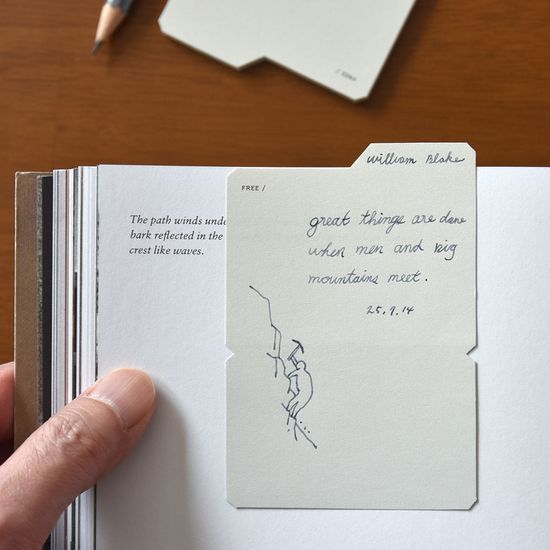 William Blake
FREE /
great things are done
when men and big
mountains meet.
25.9.14
The path winds unde
bark reflected in the
crest like waves.